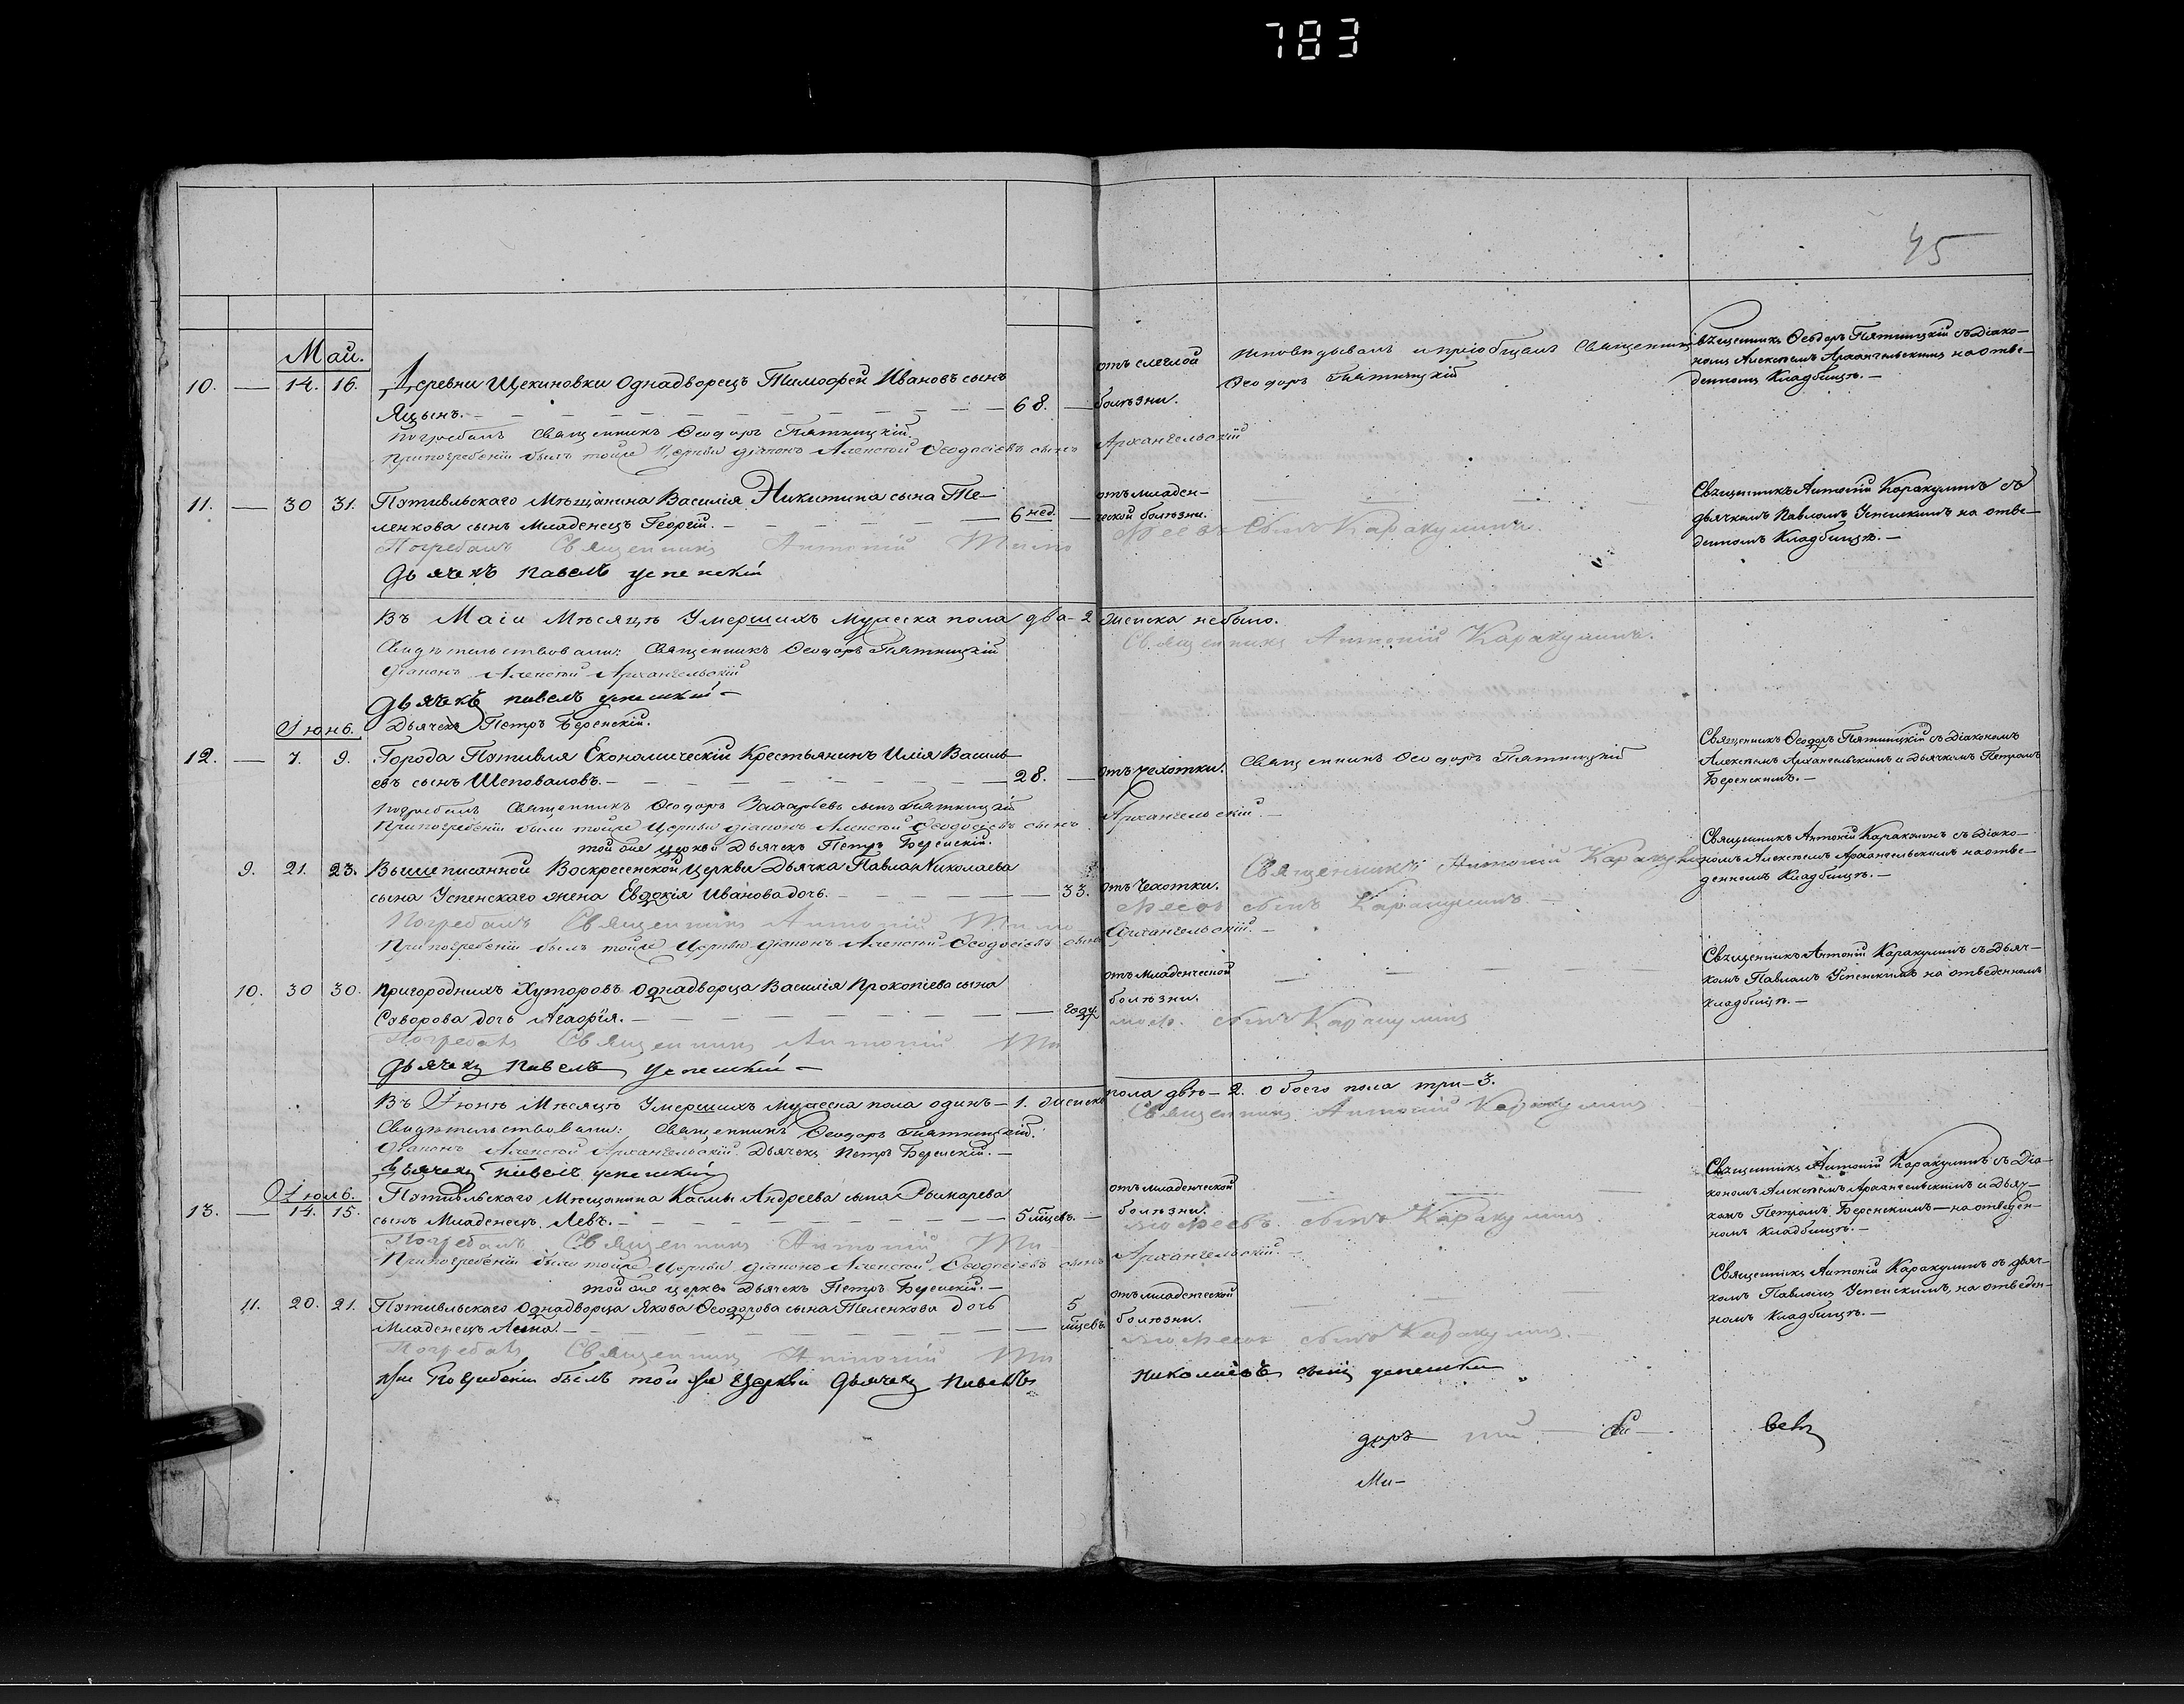 783
45
Май.
10. — 14. 16. Деревни Щекиновки Однадворецъ Тимофей Ивановъ сынъ
Яцынъ. — 68. —
отъ слеглой
болѣзни.
Исповѣдывалъ и пріобщалъ Священникъ
Ѳеодоръ Пятницкій
Священникъ Ѳеодоръ Пятницкій съ Діако-
номъ Алексѣемъ Архангельскимъ на отве-
денномъ Кладбищѣ. —
Погребалъ Священникъ Ѳеодоръ Пятницкій
При погребеніи былъ тойже Церкви діаконъ Алексѣй Ѳеодосіевъ сынъ Архангельскій
11. — 30 31. Путивльскаго Мѣщанина Василія Никитина сына Те-
ленкова сынъ Младенецъ Георгій. — 6 нед. —
отъ младен-
ческой болѣзни.
Священникъ Антоній Каракулинъ съ
дьячкомъ Павломъ Успенскимъ на отве-
денномъ Кладбищѣ. —
Погребалъ Священникъ Антоній Тимо
ѳеевъ сынъ Каракулинъ.
Дьячекъ Павелъ Успенскій
Въ Маіи Мѣсяцѣ Умершихъ мужеска пола два — 2 женска небыло.
Свидѣтельствовали: Священникъ Ѳеодоръ Пятницкій
Священникъ Антоній Каракулинъ.
Діаконъ Алексѣй Архангельскій
Дьячекъ Павелъ Успенскій —
Дьячекъ Петръ Беренскій.
Іюнь.
12. — 7. 9. Города Путивля Економическій Крестьянинъ Илія Василь-
евъ сынъ Шеповаловъ. — 28. —
отъ чехотки.
Священникъ Ѳеодоръ Пятницкій
Священникъ Ѳеодоръ Пятницкій съ Діакономъ
Алексѣемъ Архангельскимъ и Дьячкомъ Петромъ
Беренскимъ. —
Погребалъ Священникъ Ѳеодоръ Захарьевъ сынъ Пятницкій
При погребеніи были тойже Церкви діаконъ Алексѣй Ѳеодосіевъ сынъ Архангельскій. —
той же церкви Дьячекъ Петръ Беренскій.
9. 21. 23. Вышеписанной Воскресенской Церкви Дьячка Павла Николаева
сына Успенскаго жена Евдокія Иванова дочь. — 33.
отъ чехотки.
Священникъ Антоній Каракулинъ
Священникъ Антоній Каракулинъ съ Діако-
номъ Алексѣемъ Архангельскимъ на отве-
денномъ Кладбищѣ. —
Погребалъ Священникъ Антоній Тимо
ѳеевъ сынъ Каракулинъ. —
При погребеніи былъ тойже Церкви діаконъ Алексѣй Ѳеодосіевъ сынъ Архангельскій. —
10. 30 30. Пригородныхъ Хуторовъ Однадворца Василія Прокопіева сына
Суворова дочь Агафія. — году.
отъ младенческой
болѣзни.
Священникъ Антоній Каракулинъ съ Дьяч-
комъ Павломъ Успенскимъ на отведенномъ
кладбищѣ. —
Погребалъ Священникъ Антоній Ти
сынъ Каракулинъ
Дьячекъ Павелъ Успенскій —
Въ Іюнѣ Мѣсяцѣ Умершихъ мужеска пола одинъ — 1. женска пола двѣ — 2. обоего пола три — 3.
Свидѣтельствовали: Священникъ Ѳеодоръ Пятницкій.
Священникъ Антоній Каракулинъ
Діаконъ Алексѣй Архангельскій. Дьячекъ Петръ Беренскій. —
Дьячекъ Павелъ Успенскій
Іюль.
13. — 14. 15. Путивльскаго Мѣщанина Касмы Андреева сына Рымарева
сынъ Младенецъ Левъ. — 5 мцевъ. —
отъ младенческой
болѣзни.
Священникъ Антоній Каракулинъ съ Діа-
кономъ Алексѣемъ Архангельскимъ и Дьяч-
комъ Петромъ Беренскимъ — на отведен-
номъ Кладбищѣ. —
Погребалъ Священникъ Антоній Ти
моѳеевъ сынъ Каракулинъ.
При погребеніи были тойже Церкви діаконъ Алексѣй Ѳеодосіевъ сынъ Архангельскій. —
той же церкви Дьячекъ Петръ Беренскій. —
11. 20. 21. Путивльскаго Однадворца Якова Ѳеодорова сына Теленкова дочь
Младенецъ Анна. — 5 мцевъ.
отъ младенческой
болѣзни.
Священникъ Антоній Каракулинъ съ дьяч-
комъ Павломъ Успенскимъ, на отведен-
номъ Кладбищѣ. —
Погребалъ Священникъ Антоній Ти
моѳеевъ сынъ Каракулинъ. —
При погребеніи былъ той же Церкви Дьячекъ Павелъ Николаевъ сынъ Успенскій
доръ — ній. — Си —
Ми —